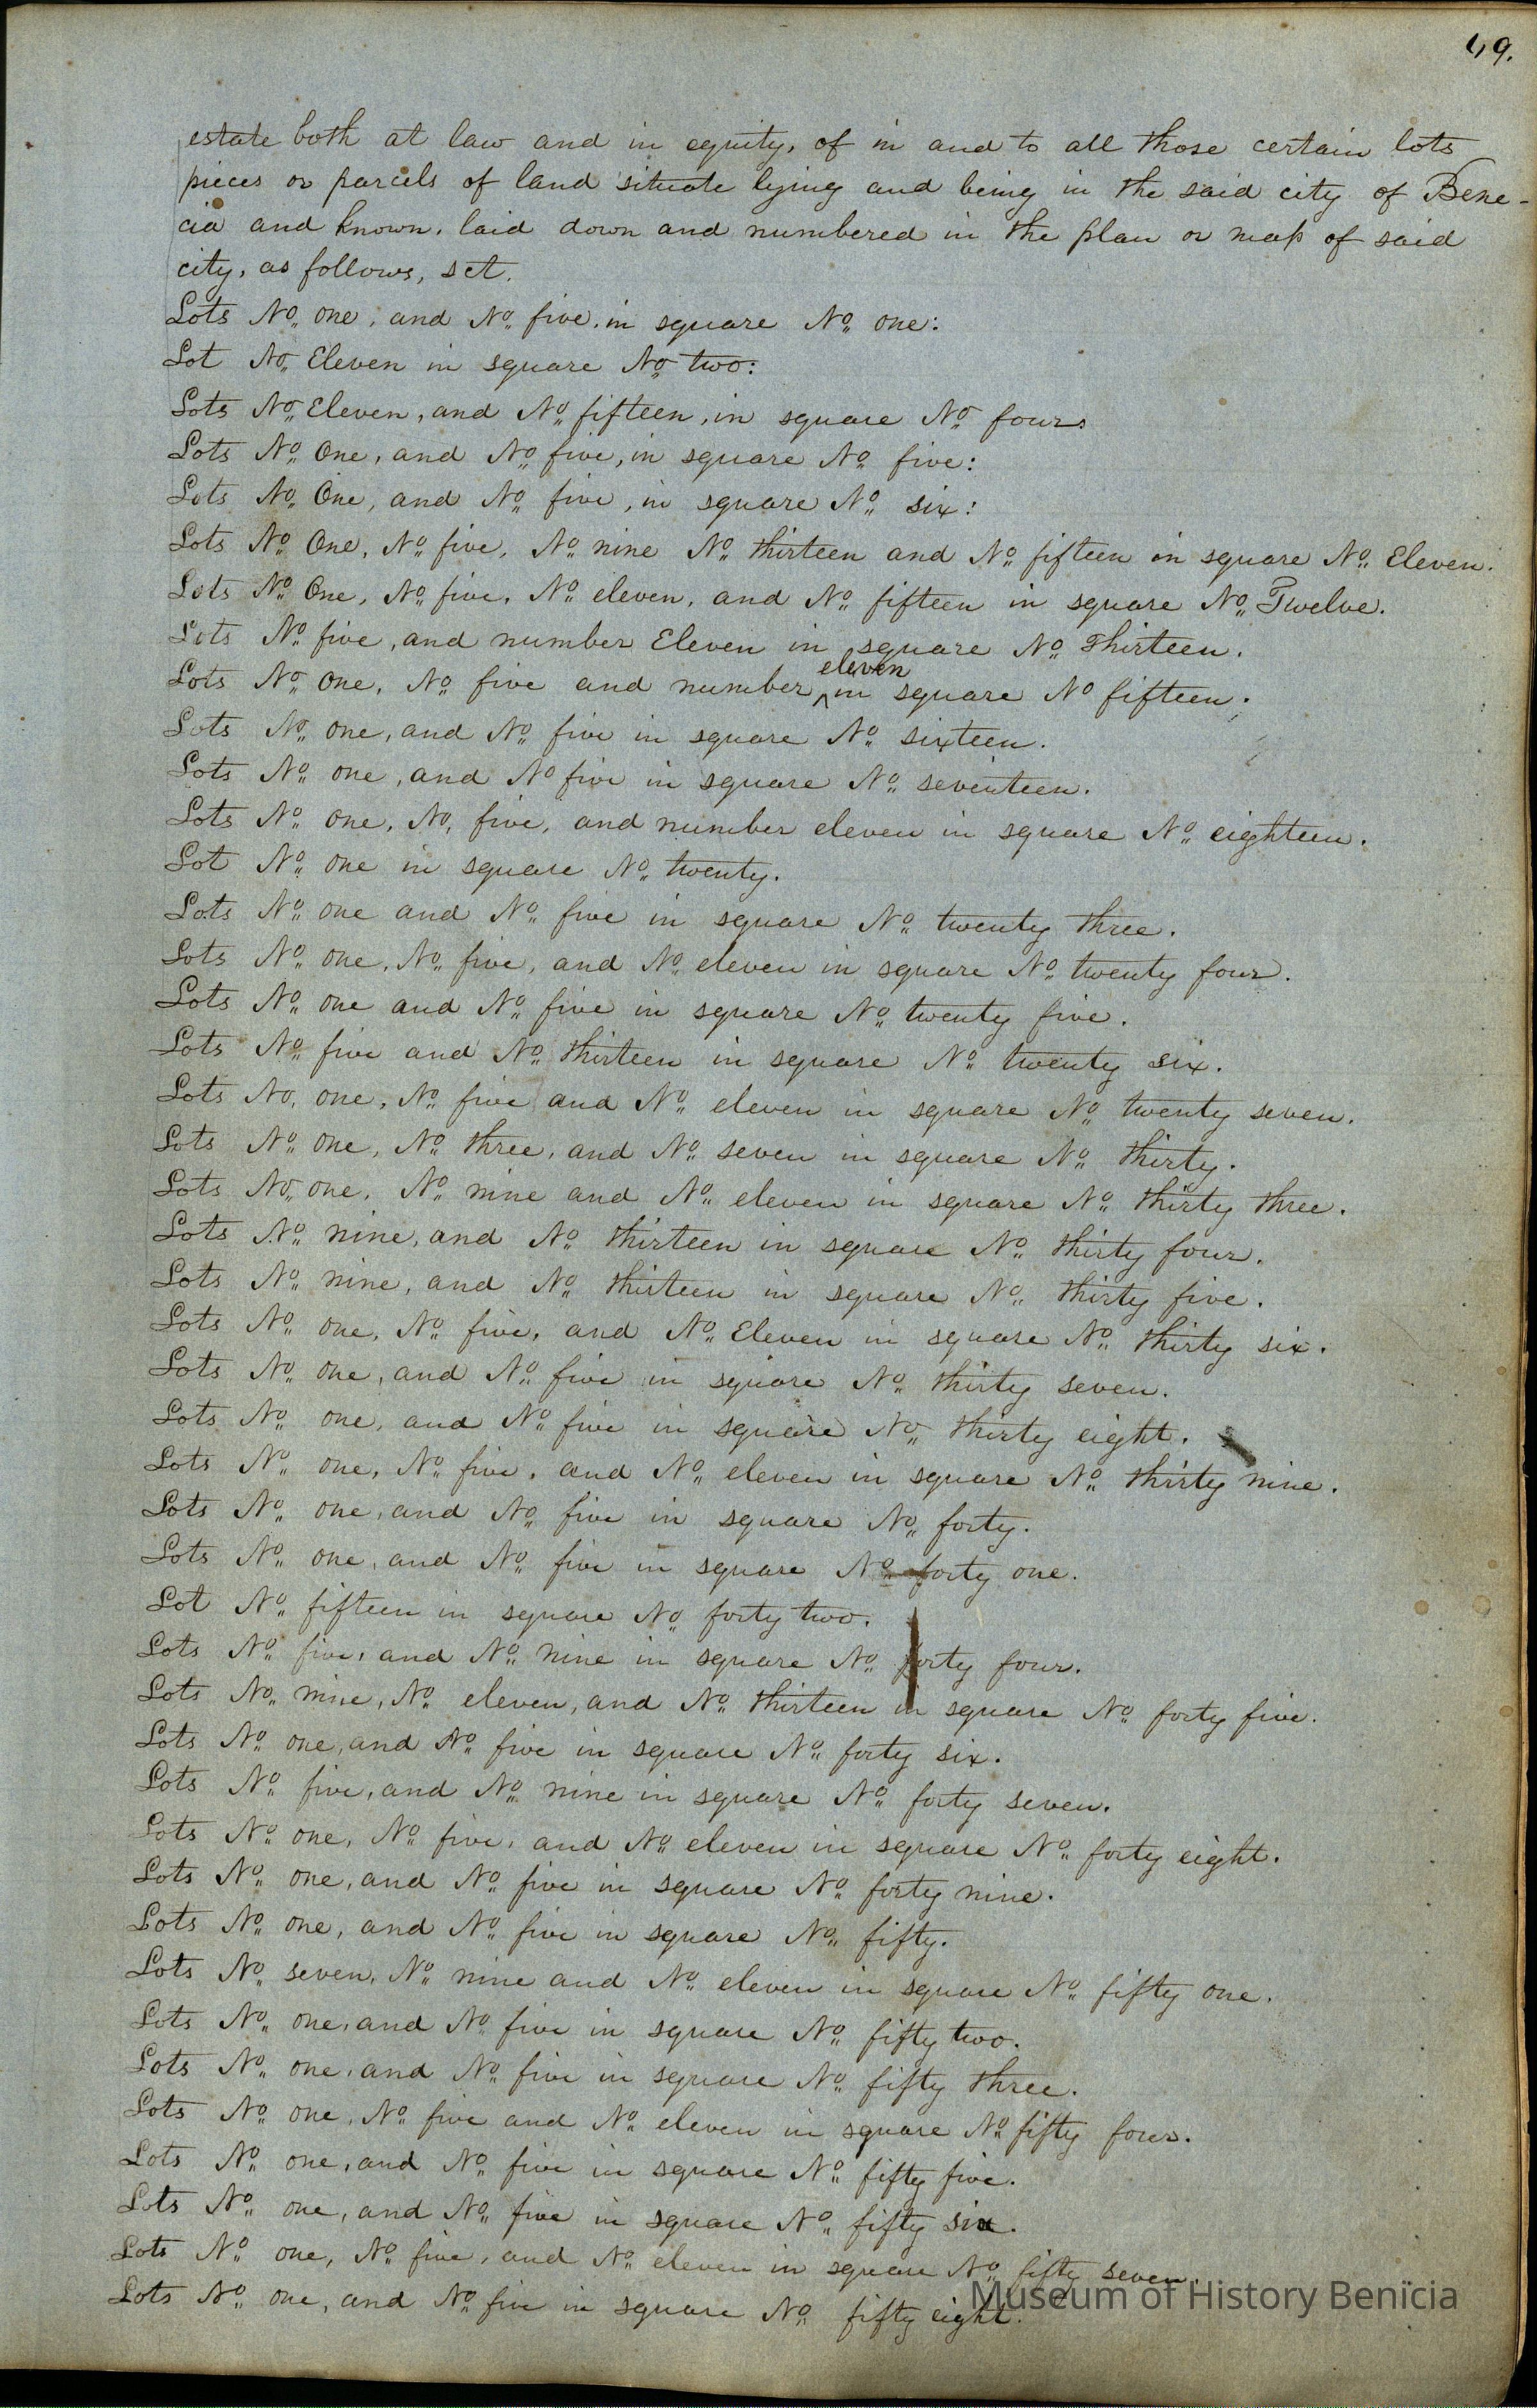 49.
estate both at law and in equity, of in and to all those certain lots
pieces or parcels of land situate lying and being in the said city of Bene-
cia and known, laid down and numbered in the plan or map of said
city, as follows, sct.
Lots No. one, and No. five, in square No. one:
Lot No. Eleven in square No. two:
Lots No. Eleven, and No. fifteen, in square No. four:
Lots No. One, and No. five, in square No. five:
Lots No. One, and No. five, in square No. six:
Lots No. One, No. five, No. nine No. thirteen and No. fifteen in square No. Eleven.
Lots No. One, No. five, No. eleven, and No. fifteen in square No. Twelve.
Lots No. five, and number Eleven in square No. Thirteen.
Lots No. one, No. five and number ^eleven in square No fifteen.
Lots No. one, and No. five in square No. sixteen.
Lots No. one, and No five in square No. seventeen.
Lots No. one, No. five, and number eleven in square No. eighteen.
Lot No. one in square No. twenty.
Lots No. one and No. five in square No. twenty three.
Lots No. one, No. five, and No. eleven in square No. twenty four.
Lots No. one and No. five in square No. twenty five.
Lots No. five and No. thirteen in square No. twenty six.
Lots No. one, No. five and No. eleven in square No. twenty seven.
Lots No. one, No. three, and No. seven in square No. thirty.
Lots No. one, No. nine and No. eleven in square No. thirty three.
Lots No. nine, and No. thirteen in square No. thirty four.
Lots No. nine, and No. thirteen in square No. thirty five.
Lots No. one, No. five, and No. Eleven in square No. thirty six.
Lots No. one, and No. five in square No. thirty seven.
Lots No. one, and No. five in square No. thirty eight.
Lots No. one, No. five, and No. eleven in square No. thirty nine.
Lots No. one, and No. five in square No. forty.
Lots No. one, and No. five in square No. forty one.
Lot No. fifteen in square No. forty two.
Lots No. five, and No. nine in square No. forty four.
Lots No. nine, No. eleven, and No. thirteen in square No. forty five.
Lots No. one, and No. five in square No. forty six.
Lots No. five, and No. nine in square No. forty seven.
Lots No. one, No. five, and No. eleven in square No. forty eight.
Lots No. one, and No. five in square No. forty nine.
Lots No. one, and No. five in square No. fifty.
Lots No. seven, No. nine and No. eleven in square No. fifty one.
Lots No. one, and No. five in square No. fifty two.
Lots No. one, and No. five in square No. fifty three.
Lots No. one, No. five and No. eleven in square No. fifty four.
Lots No. one, and No. five in square No. fifty five.
Lots No. one, and No. five in square No. fifty six.
Lots No. one, No. five, and No. eleven in square No. fifty seven.
Lots No. one, and No. five in square No. fifty eight.
Museum of History Benicia